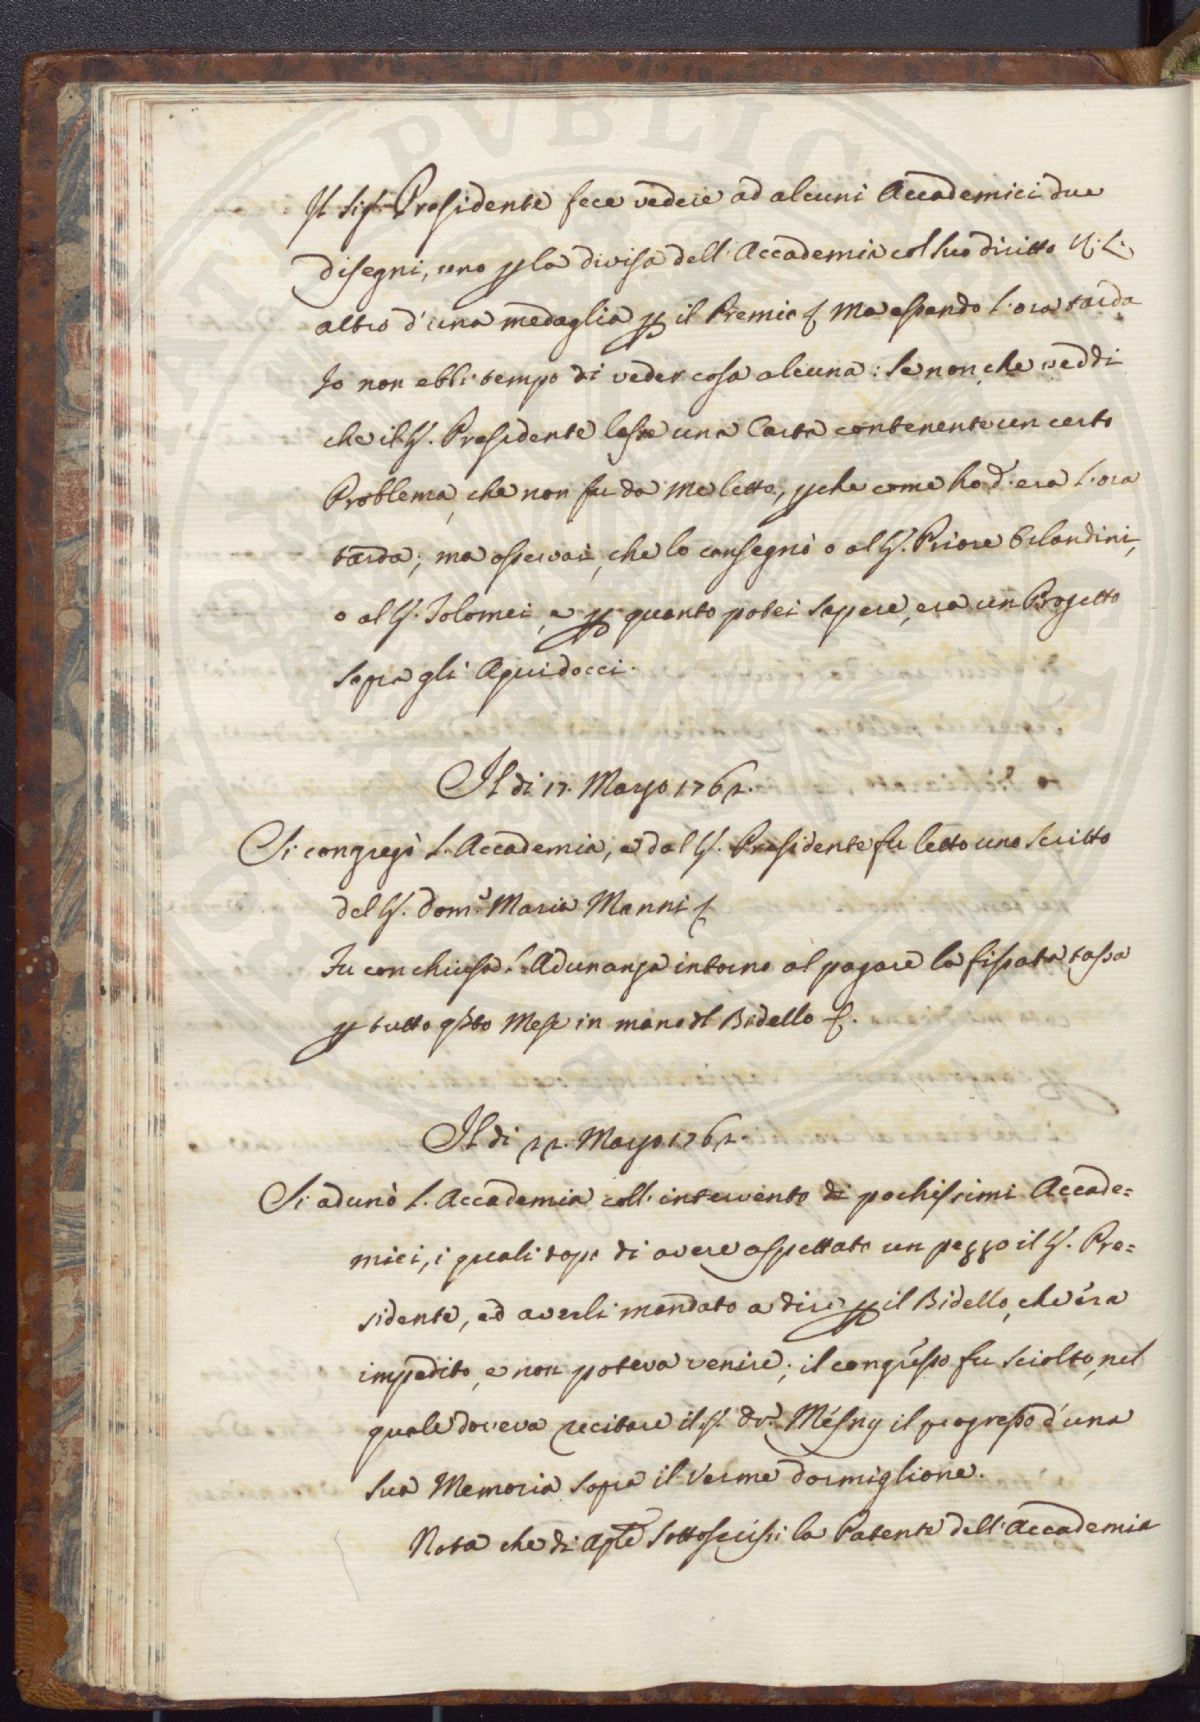 Il Sig.r Presidente fece vedere ad alcuni Accademici due
disegni, uno p la divisa dell'Accademia col suo diritto
altro d'una medaglia p il Premio &. Ma essendo l'ora tarda
Io non ebbi tempo di veder cosa alcuna: se non, che veddi
che il S. Presidente lesse una Carta contenente un certo
Problema, che non fu da me letto, p che come ho d. era l'ora
tarda; ma osservai, che lo consegnò o al S. Priore Orlandini,
o al S. Tolomei, e p quanto potei sapere, era un Progetto
sopra gli Aquidocci.
Il di 17. Marzo 1762.
Si congregò l'Accademia, e dal S. Presidente fu letto uno scritto
del S. Dom.o Maria Manni &
Fu conchiusa l'Adunanza intorno al pagare la fissata tassa
p tutto qsto Mese in mano dl Bidello &.
Il di 22. Marzo 1762.
Si adunò l'Accademia coll'intervento di pochissimi Accade=
mici, i quali dopo di avere aspettato un pezzo il S. Pre=
sidente, ed averli mandato a dire p il Bidello, che era
impedito, e non poteva venire; il congresso fu sciolto, nel
quale doveva recitare il S. Dr. Mésny il progresso d'una
sua Memoria sopra il Verme dormiglione.
Nota che di Aple sottoscrissi la Patente dell'Accademia
PVBLIC